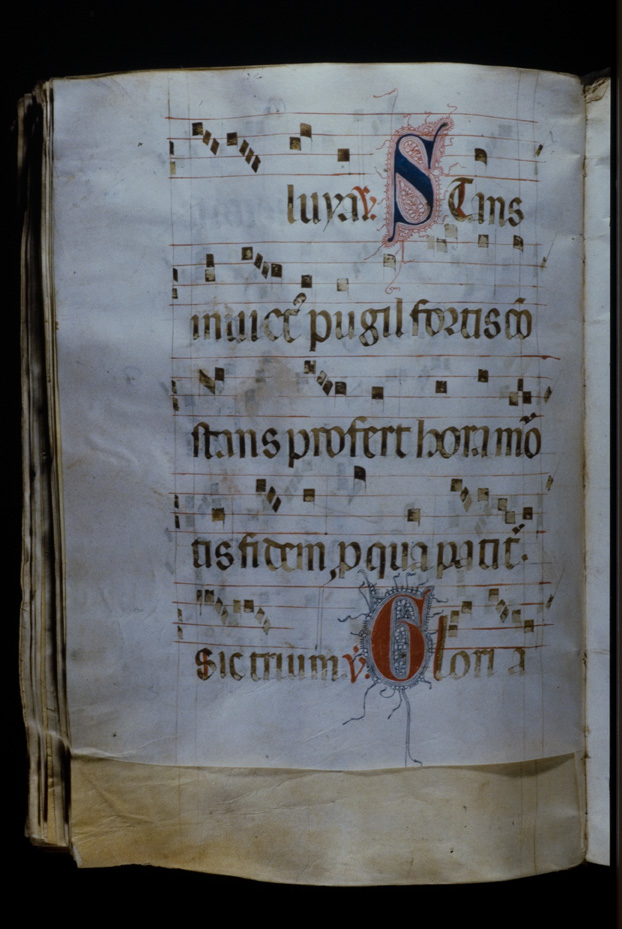 luya ℣. STans
inuictꝰ pugil fortis cō
stans profert hora mō
tis fidem ꝓ qua patit᷑.
Sic trium ℣. Gloria